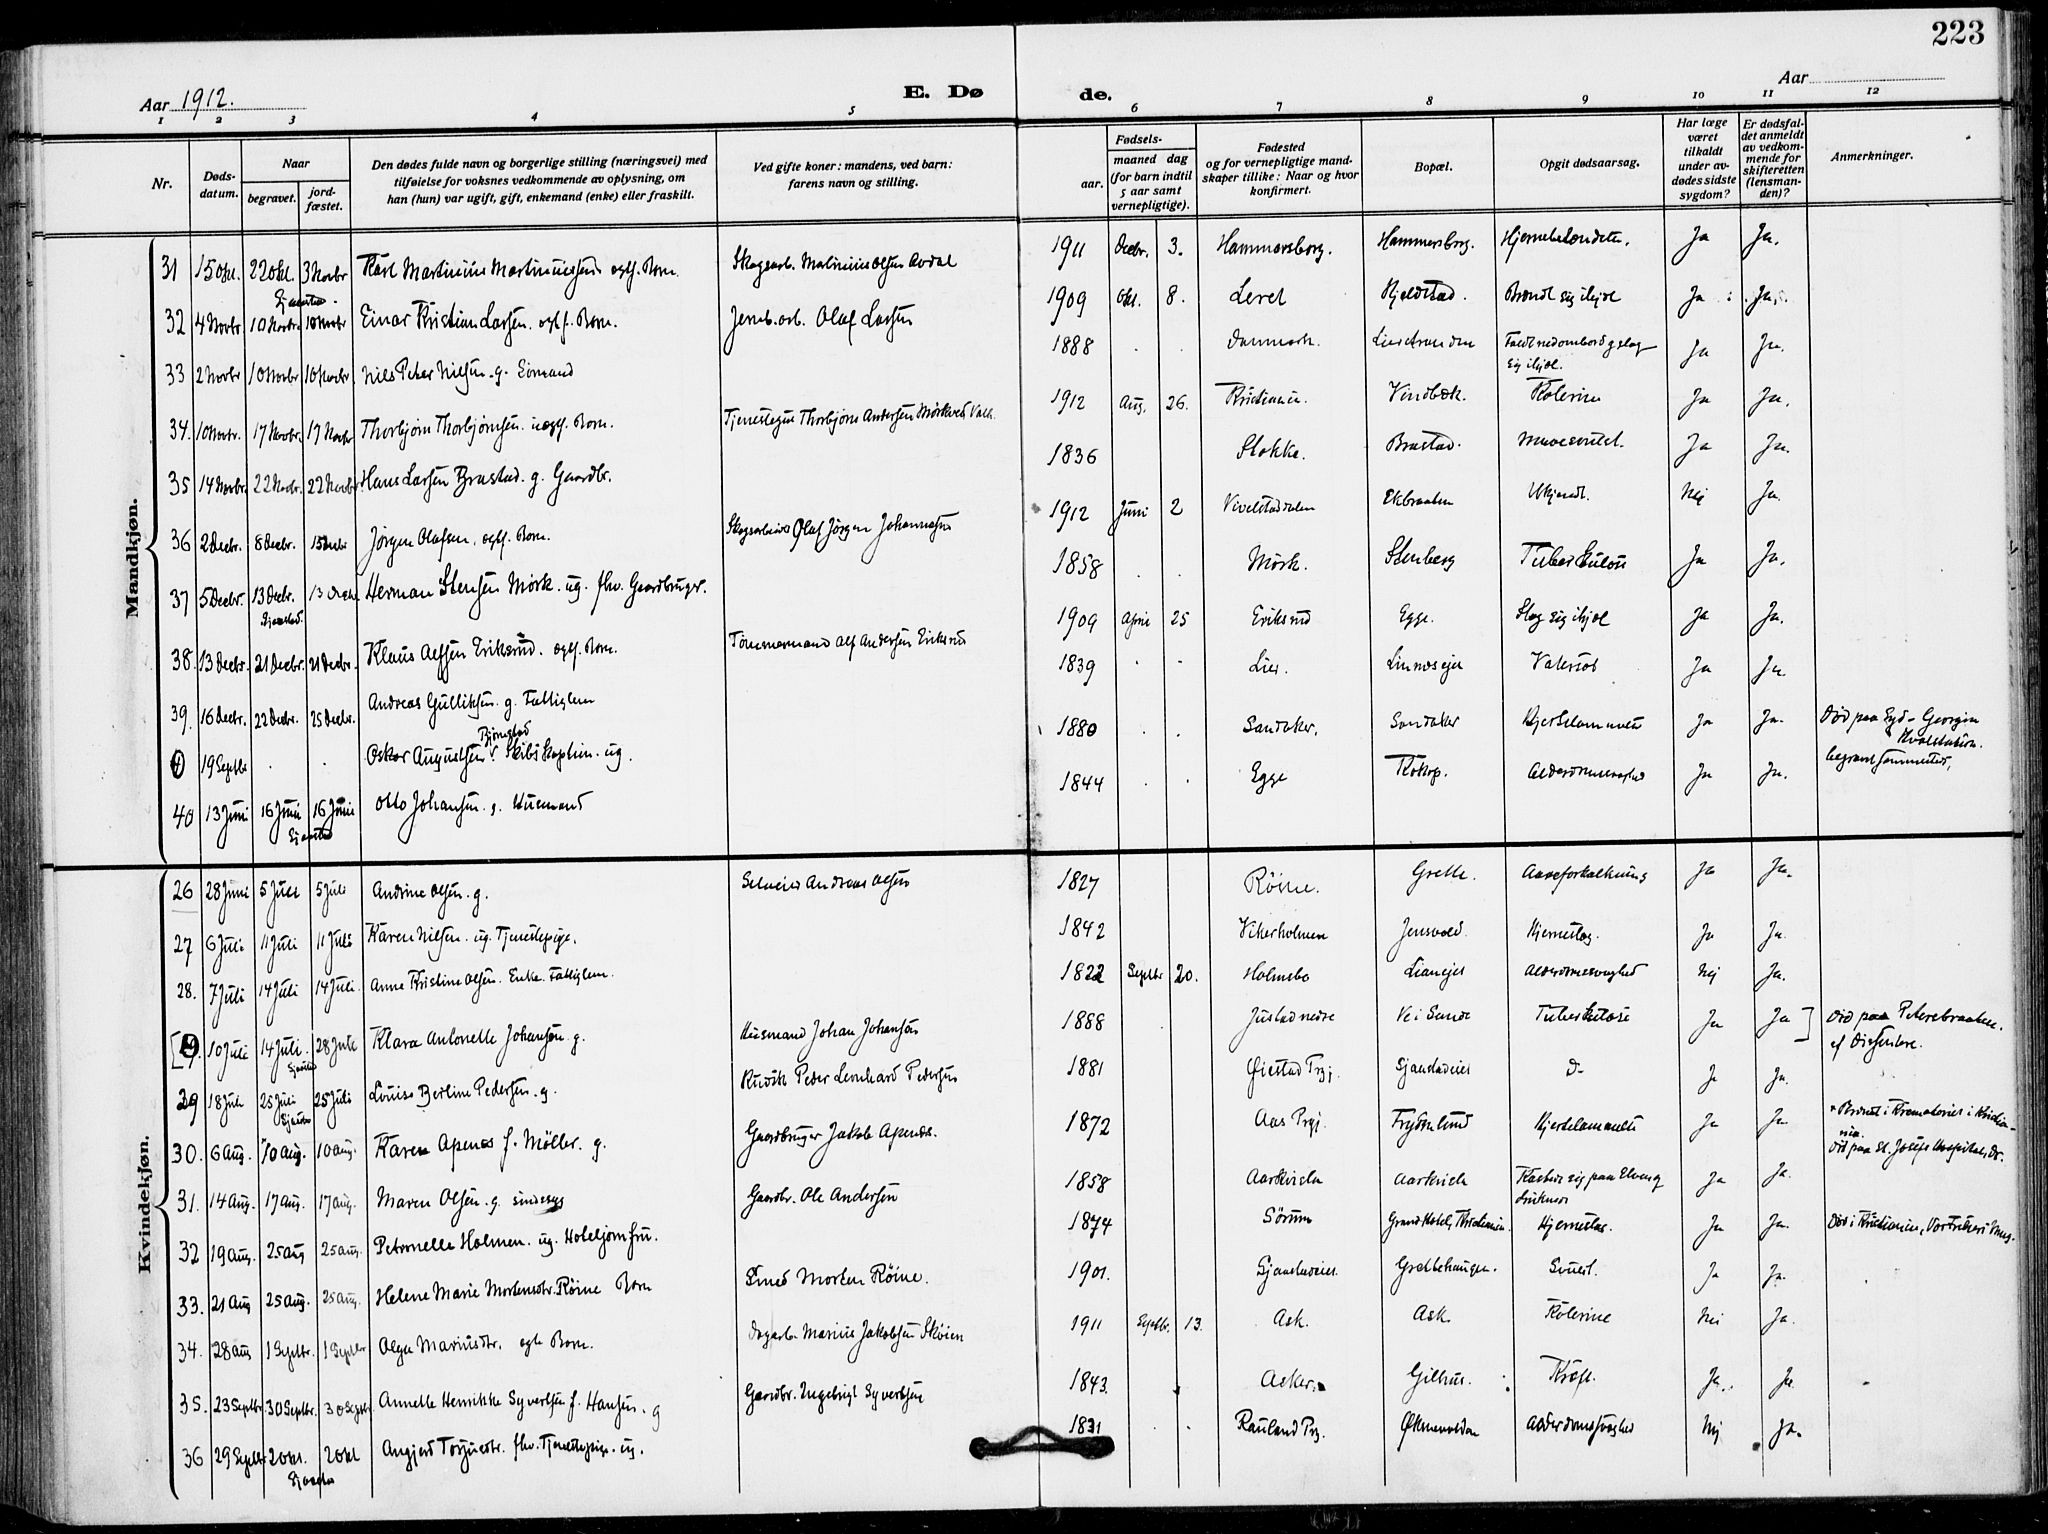 223
Aar 1912.
E. Dø de.
Aar
1 2 3 4 5 6 7 8 9 10 11 12
Nr.
Døds-
datum.
Naar
begravet.
jord-
fæstet.
Den dødes fulde navn og borgerlige stilling (næringsvei) med
tilføielse for voksnes vedkommende av oplysning, om
han (hun) var ugift, gift, enkemand (enke) eller fraskilt.
Ved gifte koner: mandens, ved barn:
farens navn og stilling.
Fødsels-
aar.
maaned dag
(for barn indtil
5 aar samt
vernepligtige).
Fødested
og for vernepligtige mand-
skaper tillike: Naar og hvor
konfirmert.
Bopæl.
Opgit dødsaarsag.
Har læge
været
tilkaldt
under av-
dødes sidste
sygdom?
Er dødsfal-
det anmeldt
av vedkom-
mende for
skifteretten
(lensman-
den)?
Anmerkninger.
Mandkjøn.
31 15 Okt. 22 Okt. 3 Novbr Karl Martinius Martiniussen ægtf. Barn. Skogsarb. Martinius Olsen Avdal 1911 Decbr. 3. Hammersborg. Hammersborg. Hjernebetændelse. Ja Ja.
Sjaastad.
32 4 Novbr 10 Novbr. 10 Novbr Einar Kristian Larsen. ægtf. Barn. Jernb. arb. Olaf Larsen 1909 Okt. 8. Leret Hjeldstad. Brændt sig ihjel Ja Ja.
33 2 Novbr 10 Novbr 10 Novbr Nils Peter Nilsen. g. Sömand 1888 Danmark. Lierstranden Faldt ned ombord og slog Ja Ja.
sig ihjel.
34. 10 Novbr. 17 Novbr. 17 Novbr Thorbjørn Thorbjørnsen. uægtf. Barn. Tjenestegut Thorbjørn Andersen Mørkved 1912 Aug. 26. Kristiania. Vindbæk. Kolerine Ja Ja.
35 14 Novbr. 22 Novbr. 22 Novbr. Hans Larsen Brastad. g. Gaardbr. 1836 Stokke. Brastad. Ja Ja.
36 2 Decbr. 8 Decbr. 15 Decbr Jørgen Olafsen, ægtf. Barn. Skogsarbeider Olaf Jørgen Johannesen 1912 Juni 2 Vivelstaddalen Ekbraaten Ukjendt. Nei Ja.
37 5 Decbr. 13 Decbr. 13 Decbr. Herman Stensen Mørk. ug. fhv. Gaardbruger. 1858 Mørk. Stenberg Tuberkulose Ja Ja.
Sjaastad.
38. 13 Decbr. 21 Decbr. 21 Decbr. Klaus Alfsen Eriksrud. ægtf. Barn. Tömmermand Alf Andersen Eriksrud 1909 April 25 Eriksrud Egge. Slog sig ihjel Ja Ja.
39. 16 Decbr. 22 Decbr. 25 Decbr. Andreas Gulliksen. g. Fattiglem 1839 Lier. Linnæseiet Ja Ja.
19 Septbr Oskar Augustsen Bjørnstad Skibskaptein. ug. 1880 Sandaker. Sandaker Hjertelammelse Ja Ja. Død paa Syd-Georgia
Hvalstation.
begravet sammesteds.
40 13 Juni 16 Juni 16 Juni Otto Johansen. g. Husmand 1844 Egge Alderdomssvaghed Ja Ja.
Sjaastad
Kvindekjøn.
26 28 Juni 5 Juli 5 Juli Andrine Olsen. g. Selveier Andreas Olsen 1827 Röine. Grette. Aareforkalkning Ja Ja.
27 6 Juli 11 Juli 11 Juli Karen Nilsen. ug. Tjenestepige. 1842 Vikerholmen Jensvold. Hjerneslag. Ja Ja.
28. 7 Juli 14 Juli 14 Juli. Anne Kristine Olsen. Enke. Fattiglem. 1822 Septbr 20. Holmsbo Lianeiet Alderdomssvaghed Nei Ja.
10 Juli 14 Juli. 28 Juli Klara Antonette Johansen g. Husmand Johan Johansen 1888 Justad nedre Ve i Sande Tuberkulose Ja Ja Død paa Petersbraaten.
Sjaastad
29 18 Juli 25 Juli 25 Juli Louise Berline Pedersen. g. Peder Leonhard Pedersen 1881 Øiestad Prgj. Sjaastadeiet D- Ja Ja.
Sjaastad
30. 6 Aug. 10 Aug. 10 Aug. Karen Apenæs f. Möller. g. Gaardbruger Jakob Apenæs. 1872 Aas Prgj. Frydenlund Hjertelammelse Ja Ja. Brændt i Krematoriet i Kristia-
nia.
Død paa St. Josefs Hospital, Dr.
31. 14 Aug. 17 Aug. 17 Aug. Maren Olsen. g. sindssyg Gaardbr. Ole Andersen 1858 Aarkvisla Aarkvisla Kastet sig paa Elven og Ja Ja.
druknede
32 19 Aug. 25 Aug 25 Aug. Petronelle Holmen. ug. Hoteljomfru. 1874 Sörum Grand Hotel, Kristiania. Hjerneslag. Ja Ja. Død i Kristiania,
33. 21 Aug 25 Aug. 25 Aug. Helene Marie Mortensdtr. Röine Barn Smed Morten Röine. 1901. Sjaastadeiet. Grettehaugen. Ja Ja.
34. 28 Aug 1 Septbr. 1 Septbr Olga Mariusdtr. ægte Barn. Dagarb. Marius Jakobsen Skoien 1911 Septbr. 13. Ask. Ask. Kolerine Nei Ja.
35. 23 Septbr. 30 Septbr. 30 Septbr Annette Henrikke Syvertsen f. Hansen. g Gaardbr. Ingebrigt Syvertsen 1843. Asker. Gilhus. Kræft. Ja Ja.
36 29 Septbr 2 Okt. 2 Okt Angjerd Torjusdtr. fhv. Tjenestepige. ug. 1831 Rauland Prg. Alderdomssvaghed Nei Ja.
Sjaastad